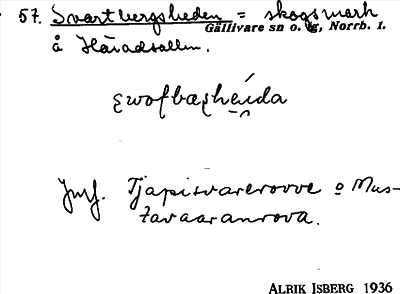 57. Svartbergsheden = skogsmark
Gällivare sn o. sg, Norrb. l.
å Häradsallm.
Jmf. Tjapisvarerovve o Mus-
tavaaranrova.
ALRIK ISBERG 1936